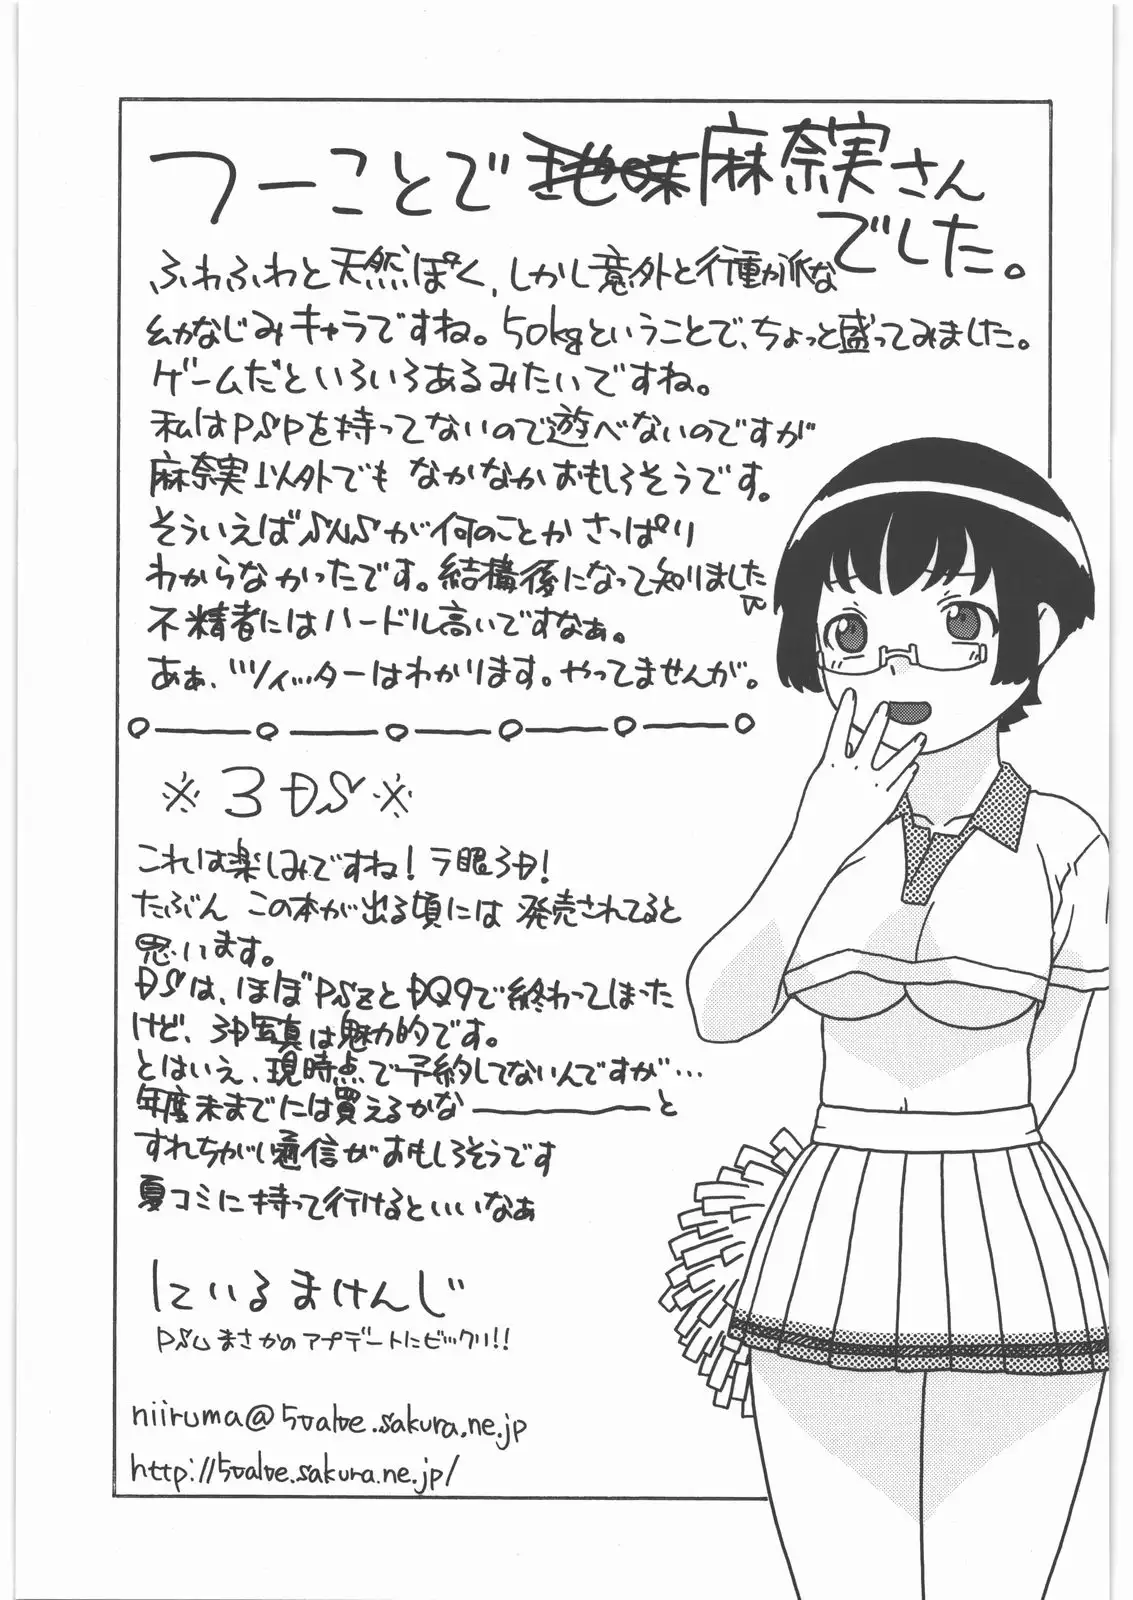 つーことで地味麻奈実さん
でした。
ふわふわと天然ぽく、しかし意外と行動派な
幼なじみキャラですね。50kgということで、ちょっと盛ってみました。
ゲームだといろいろあるみたいですね。
私はPSPを持ってないので遊べないのですが
麻奈実以外でも なかなかおもしろそうです。
そういえばSNSが何のことか さっぱり
わからなかったです。結構後になって知りました
不精者にはハードル高いですなぁ。
あぁ、ツイッターはわかります。やってませんが。
※3DS※
これは楽しみですね!ラ眼3D!
たぶん この本が出る頃には 発売されてると
思います。
DSは、ほぼPSZとDQ9で終わってしまった
けど、3D写真は魅力的です。
とはいえ、現時点で予約してないんですが…
年度末までには買えるかな――と
すれちがい通信がおもしろそうです
夏コミに持って行けるといいなぁ
にいるまけんじ
PSU まさかのアプデートにビックリ!!
niiruma@5value.sakura.ne.jp
http://5value.sakura.ne.jp/